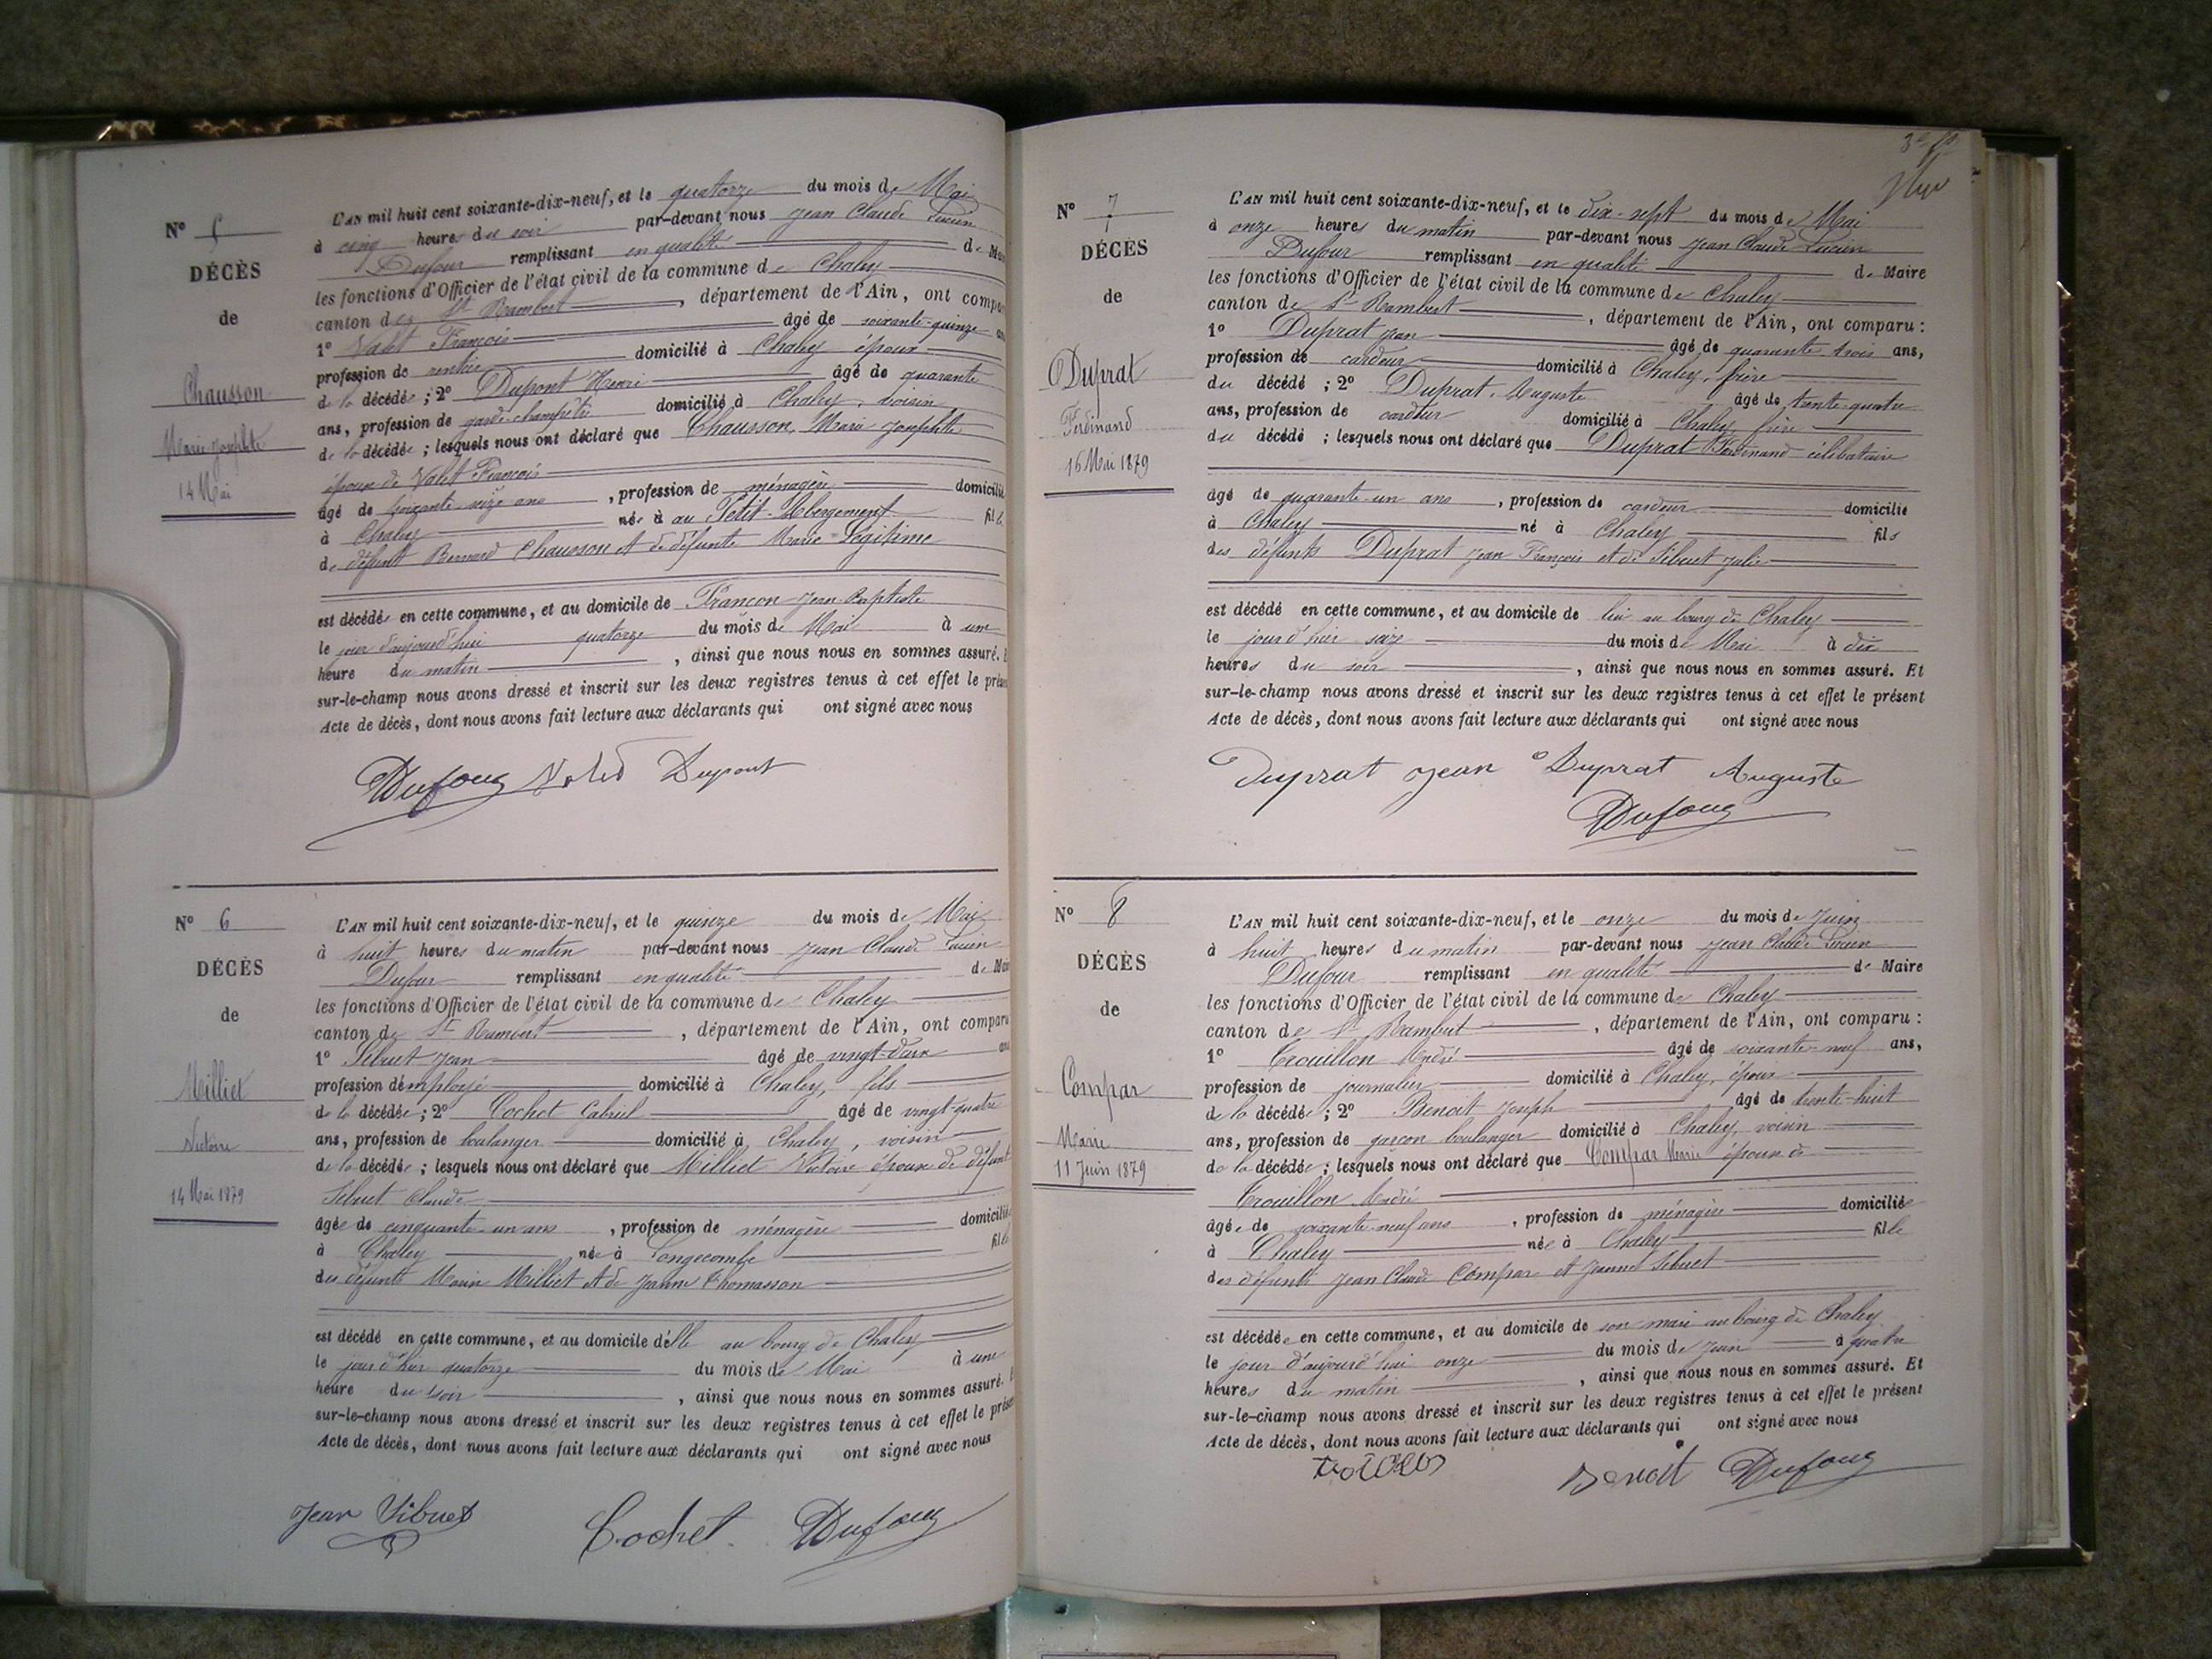 N° 5
DÉCÈS
de
Chausson
Marie Josephte
14 Mai
L'AN mil huit cent soixante-dix-neuf, et le quatorze du mois de Mai
à cinq heures du soir par-devant nous Jean Claude Lucien
Dufour remplissant en qualité de Mai
les fonctions d'Officier de l'état civil de la commune de Chaley
canton de St Rambert, département de l'Ain, ont compa
1° Valet François âgé de soixante-quinze an
profession de rentier domicilié à Chaley époux
de la décédée; 2° Dupont Henri âgé de quarante
ans, profession de garde-champêtre domicilié à Chaley, voisin
de la décédée; lesquels nous ont déclaré que Chausson, Marie Josephte
épouse de Valet François
âgé de soixante-seize ans, profession de ménagère domicilié
à Chaley née à au Petit-Abergement fille
de défunt Bernard Chausson et de défunte Marie Légitime
est décédée en cette commune, et au domicile de Françon Jean-Baptiste
le jour d'aujourd'hui quatorze du mois de Mai à une
heure du matin, ainsi que nous nous en sommes assuré. E
sur-le-champ nous avons dressé et inscrit sur les deux registres tenus à cet effet le prése
Acte de décès, dont nous avons fait lecture aux déclarants qui ont signé avec nous
Dufour Valet Dupont
N° 6
DÉCÈS
de
Milliet
Victoire
14 Mai 1879
L'AN mil huit cent soixante-dix-neuf, et le quinze du mois de Mai
à huit heures du matin par-devant nous Jean Claude Lucien
Dufour remplissant en qualité de Mai
les fonctions d'Officier de l'état civil de la commune de Chaley
canton de St Rambert, département de l'Ain, ont comparu
1° Sibuet Jean âgé de vingt-deux ans
profession d'employé domicilié à Chaley, fils
de la décédée; 2° Cochet Gabriel âgé de vingt-quatre
ans, profession de boulanger domicilié à Chaley, voisin
de la décédée; lesquels nous ont déclaré que Milliet Victoire épouse de défunt
Sibuet Claude
âgée de cinquante-un ans, profession de ménagère domicilié
à Chaley née à Longecombe fille
des défunts Marin Milliet et de Jeanne Thomasson
est décédé en cette commune, et au domicile d'elle au bourg de Chaley
le jour d'hier quatorze du mois de Mai à une
heure du soir, ainsi que nous nous en sommes assuré. E
sur-le-champ nous avons dressé et inscrit sur les deux registres tenus à cet effet le prése
Acte de décès, dont nous avons fait lecture aux déclarants qui ont signé avec nous
Jean Sibuet Cochet Dufour
N° 7
DÉCÈS
de
Duprat
Ferdinand
16 Mai 1879
L'AN mil huit cent soixante-dix-neuf, et le dix-sept du mois de Mai
à onze heures du matin par-devant nous Jean Claude Lucien
Dufour remplissant en qualité de Maire
les fonctions d'Officier de l'état civil de la commune de Chaley
canton de St Rambert, département de l'Ain, ont comparu :
1° Duprat Jean âgé de quarante trois ans,
profession de cardeur domicilié à Chaley, frère
du décédé; 2° Duprat, Auguste âgé de trente-quatre
ans, profession de cardeur domicilié à Chaley, frère
du décédé; lesquels nous ont déclaré que Duprat Ferdinand célibataire
âgé de quarante-un ans, profession de cardeur domicilié
à Chaley né à Chaley fils
des défunts Duprat Jean François et de Sibuet Julie
est décédé en cette commune, et au domicile de lui au bourg de Chaley
le jour d'hier seize du mois de Mai à dix
heures du soir, ainsi que nous nous en sommes assuré. Et
sur-le-champ nous avons dressé et inscrit sur les deux registres tenus à cet effet le présent
Acte de décès, dont nous avons fait lecture aux déclarants qui ont signé avec nous
Duprat Jean Duprat Auguste
Dufour
N° 8
DÉCÈS
de
Compar
Marie
11 Juin 1879
L'AN mil huit cent soixante-dix-neuf, et le onze du mois de Juin
à huit heures du matin par-devant nous Jean Claude Lucien
Dufour remplissant en qualité de Maire
les fonctions d'Officier de l'état civil de la commune de Chaley
canton de St Rambert, département de l'Ain, ont comparu :
1° Trouillon André âgé de soixante-neuf ans,
profession de journalier domicilié à Chaley, époux
de la décédée; 2° Benoit Joseph âgé de trente-huit
ans, profession de garçon boulanger domicilié à Chaley, voisin
de la décédée; lesquels nous ont déclaré que Compar Marie épouse de
Trouillon André
âgée de soixante-neuf ans, profession de ménagère domiciliée
à Chaley née à Chaley fille
des défunts Jean Claude Compar et Jeanne Sibuet
est décédée en cette commune, et au domicile de son mari au bourg de Chaley
le jour d'aujourd'hui onze du mois de Juin à quatre
heures du matin, ainsi que nous nous en sommes assuré. Et
sur-le-champ nous avons dressé et inscrit sur les deux registres tenus à cet effet le présent
Acte de décès, dont nous avons fait lecture aux déclarants qui ont signé avec nous
Benoit Dufour